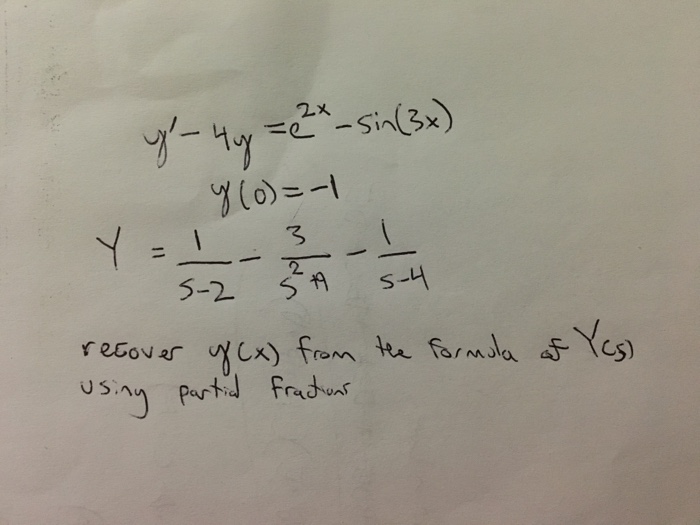 y' - 4y = e^2x - sin(3x)
y(0) = -1
Y = 1/(s-2) - 3/(s^2+9) - 1/(s-4)
recover y(x) from the formula of Y(s)
using partial fractions